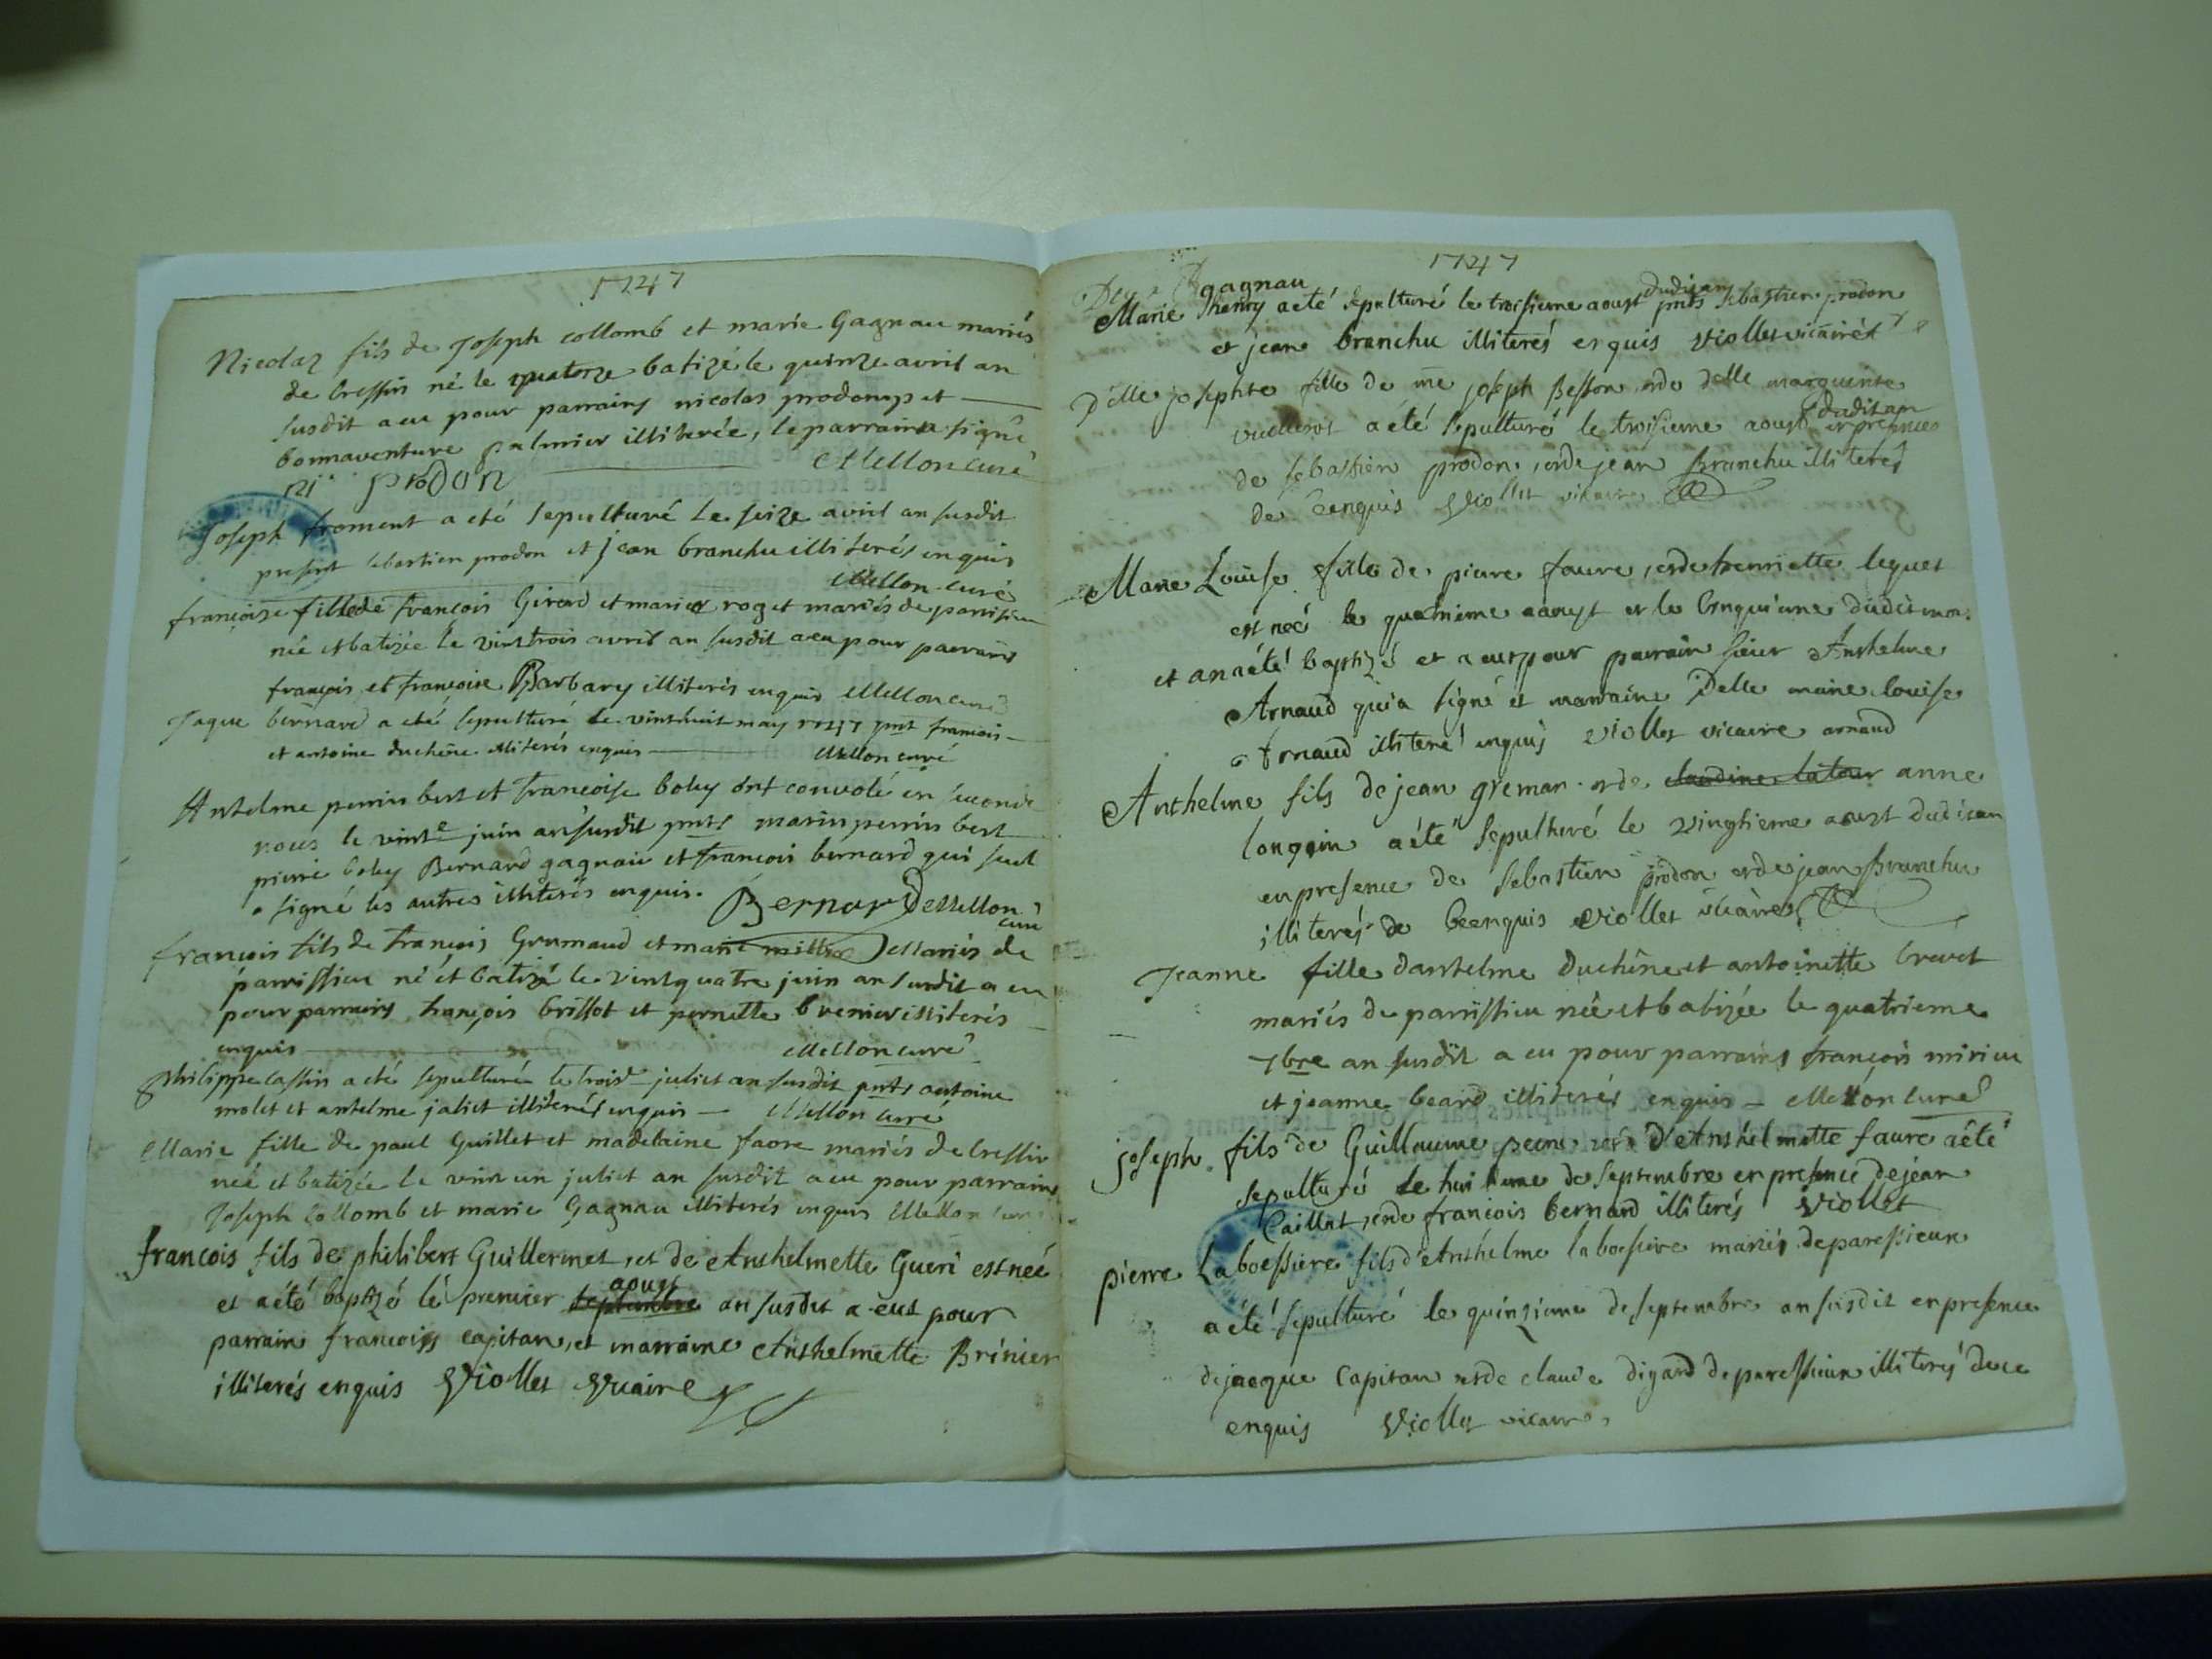 1747
Nicolas fils de Joseph collomb et marie Gagnau mariés
de Cressin né le quatorze batizé le quinze avril an
susdit a eu pour parrains nicolas prodon et
bonnaventure palmier illiterée, le parrain a signé
ni prodon Mellon curé
Joseph froment a eté sepulturé le seize avril an susdit
present sebastien prodon et jean branchu illiterés enquis
Mellon curé
françoise fille de françois Girard et marie roget mariés de parrissieu
née et batizée le vint trois avril an susdit a eu pour parrains
françois et françoise Barbary illiterés enquis Mellon curé
Jaque bernard a eté sepulturé le vinthuit may 1747 pnt francois
et antoine duchêne illiterés enquis Mellon curé
Antelme perrin bert et françoise boley ont convolé en seconde
nous le vinte juin an susdit pnts marin perrin bert
pierre boley Bernard gagnau et françois bernard qui seul
a signé les autres illiterés enquis. Bernard Mellon
curé
francois fils de françois Grumaud et marie Mariés de
parrissieu né et batizé le vintquatre juin an susdit a eu
pour parrains françois brillot et pernette brenier illiterés
enquis Mellon curé
philippe cassin a eté sepulturé le trois juliet an susdit pnts antoine
molet et antelme joliet illiterés enquis Mellon curé
Marie fille de paul Guillet et madelaine favre mariés de Cressin
née et batizée le vint un juliet an susdit a eu pour parrains
Joseph Collomb et marie Gagnau illiterés enquis Mellon curé
francois fils de philibert Guillermet, et de Anthelmette Gueri est neé
aoust
et a été baptizé lé premier septembre an susdit a eut pour
parrain francois capitan, et marraine Anthelmette Brinier
illiterés enquis Viollet vicaire
1747
gagnau
dudit an
Marie thenry a eté sepulturé le troisieme aoust pnts sebastien prodon
et jean branchu illiterés enquis viollet vicaire
Delle josephte fille de me joseph Besson, et de delle marguerite
dudit an
a été sepulturé le troisieme aoust en presence
de sebastien prodon, et de jean branchu illiterés
de ce enquis Viollet vicaire
Marie Louïse fille de pierre faure, et de henriette lequet
est neé le quatrieme aoust et le cinquieme dudit mois
et an a été baptizé et a eut pour parrain sieur Anthelme
Arnaud qui a signé et marraine Delle marie louise
Arnaud illiteré enquis viollet vicaire arnaud
Anthelme fils de jean greman et de claudine latour anne
longoin a été sepulturé le vingtieme aoust dudit an
en presence de sebastien prodon et de jean branchu
illiterés de ce enquis viollet vicaire
Jeanne fille dantelme Duchêne et antoinette brevet
mariés de parrissieu née et batizée le quatrieme
7bre an susdit a eu pour parrains françois mirieu
et jeanne beard illiterés enquis Mellon curé
joseph fils de Guillaume et d'Anthelmette faure a été
sepulturé le huitieme de septembre en presence de jean
Caillat, et de francois bernard illiterés Viollet
pierre Laboessiere fils d'Anthelme laboessiere mariés de paressieux
a été sepulturé le quinzieme de septembre an susdit en presence
de jacque Capitan et de claude digard de paressieux illiterés de ce
enquis Viollet vicaire